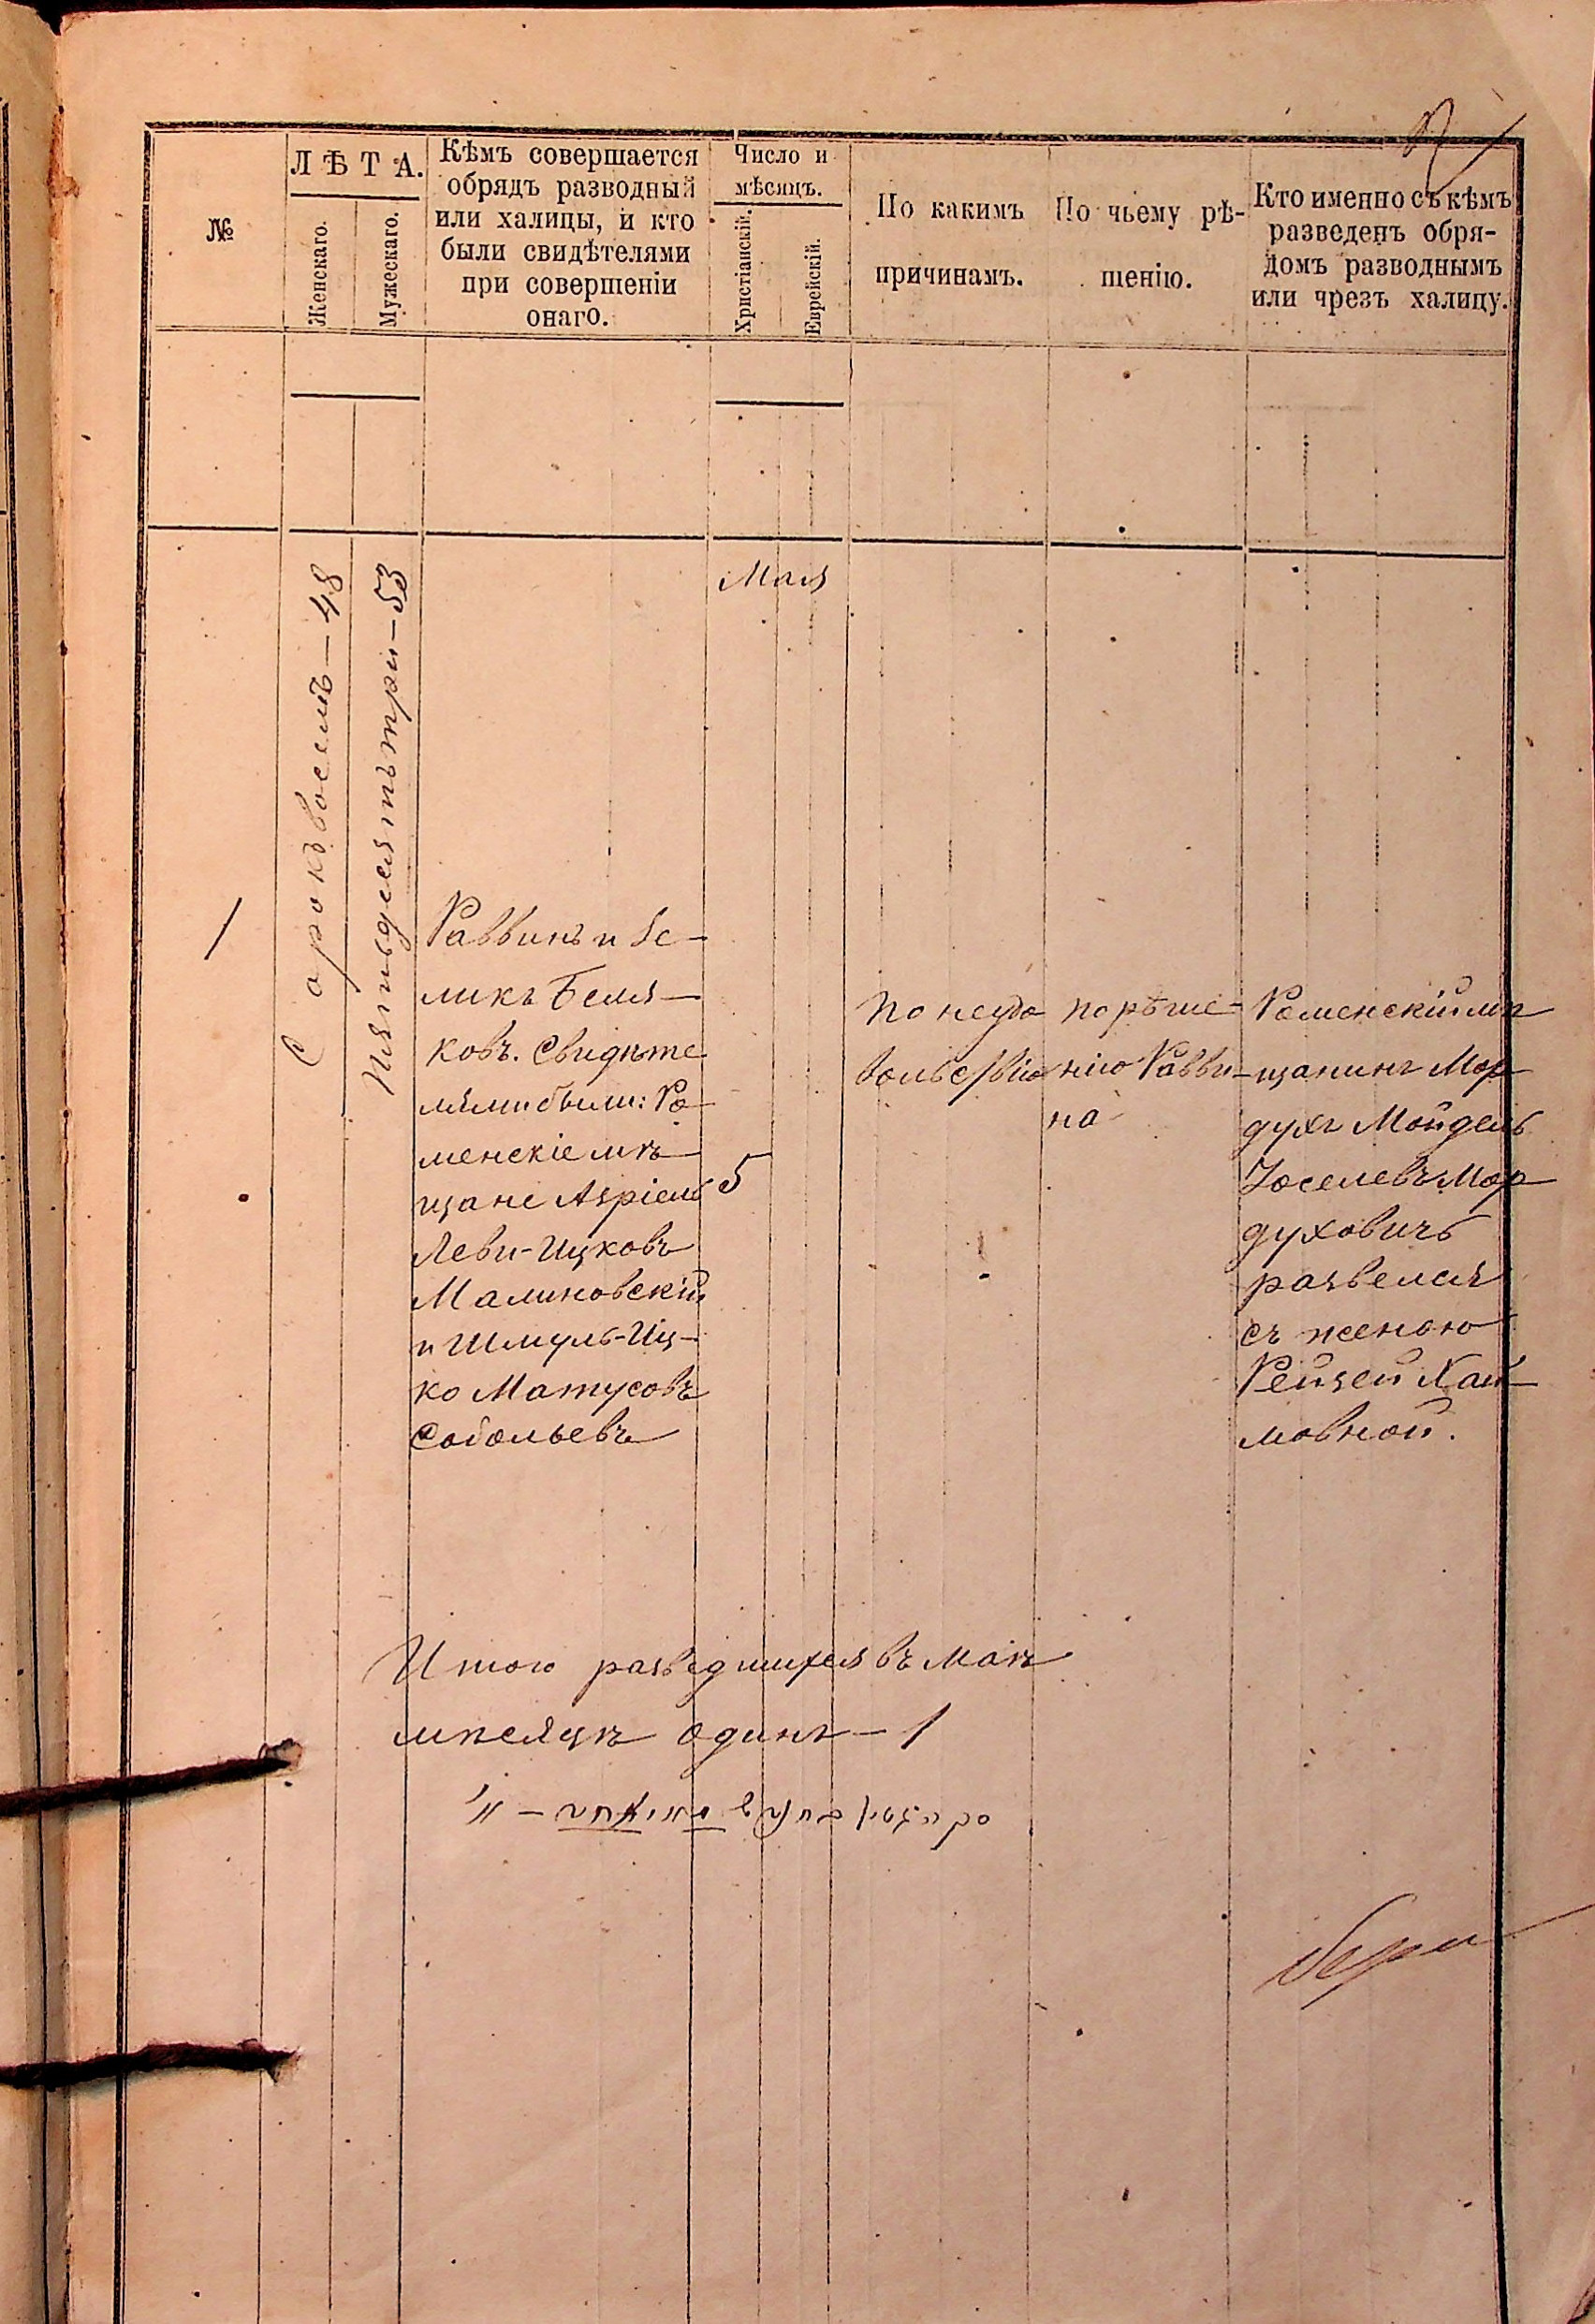 №
ЛѢТА.
Женскаго.
Мужескаго.
Кѣмъ совершается
обрядъ разводный
или халицы, и кто
были свидѣтелями
при совершеніи
онаго.
Число и
мѣсяцъ.
Христіанскій.
Еврейскій.
По какимъ
причинамъ.
По чьему рѣ-
шенію.
Кто именно съ кѣмъ
разведенъ обря-
домъ разводнымъ
или чрезъ халицу.
Мая
1
Сорокъ восемь – 48
Пятьдесятъ три – 53
Раввинъ и Зе-
ликъ Беля-
ковъ. Свидѣте
лями были: Ро
менскіе мѣ-
щане Азріель
Леви-Ицковъ
Малиновскій
и Шмуль-Иц-
ко Матусовъ
Собольевъ
5
По неудо
вольствію
по рѣше-
нію Равви-
на
Роменскій мѣ
щанинъ Мор
духъ Мойдель
Іоселевъ Мор
духовичъ
развелся
съ женою
Рейзей Хай-
мовной.
Итого разведшихся въ Маѣ
мѣсяцѣ одинъ – 1